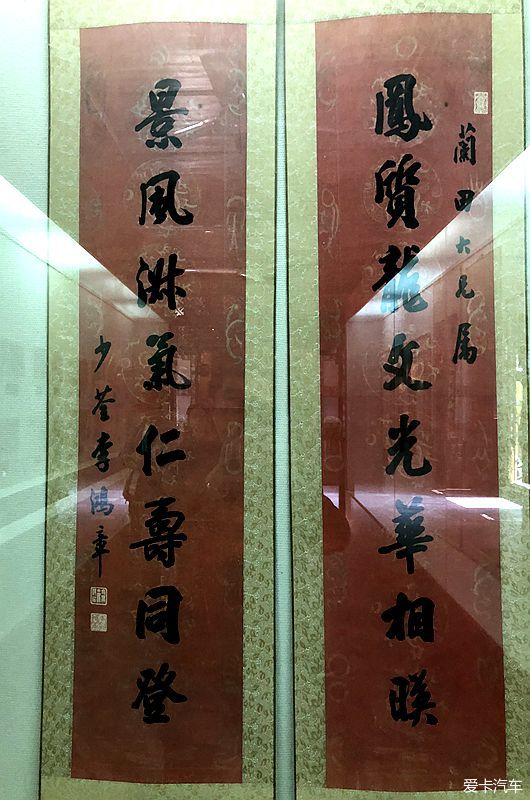 蘭田大兄属
鳳質龍文光華相暎
景風淑氣仁壽同登
少荃李鴻章
爱卡汽车